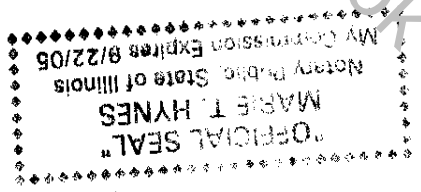 "OFFICIAL SEAL"
MARIE T. HYNES
Notary Public, State of Illinois
My Commission Expires 9/22/05